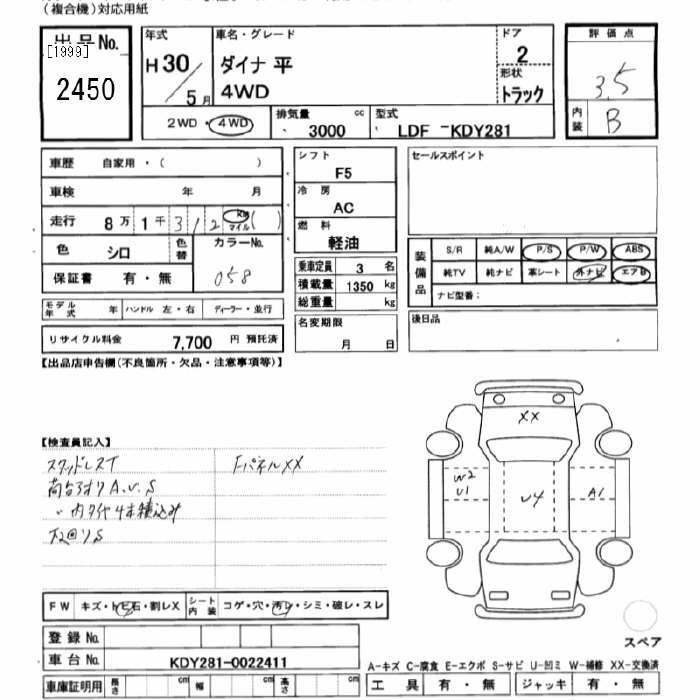 (複合機)対応用紙
出品No.
[1999]
2450
年式
H30/5月
車名・グレード
ダイナ 平
4WD
ドア
2
形状
トラック
評価点
3.5
内装
B
2WD・4WD
排気量
3000 cc
型式
LDF -KDY281
車歴 自家用・( )
車検 年 月
走行 8万1千312 Km マイル( )
色 シロ
色替
カラーNo.
058
保証書 有・無
シフト
F5
冷房
AC
燃料
軽油
乗車定員 3 名
積載量 1350 kg
総重量 kg
セールスポイント
装備品
S/R 純A/W P/S P/W ABS
純TV 純ナビ 革シート 外ナビ エアB
ナビ型番:
モデル年式 年 ハンドル 左・右 ディーラー・並行
リサイクル料金 7,700 円 預託済
名変期限
月 日
後日品
【出品店申告欄(不良箇所・欠品・注意事項等)】
【検査員記入】
スタッドレスT
FパネルXX
A.U.S
内タイヤ4本積込み
XX
W2
U1
U4
A1
FW キズ・トビ石・割レX
シート内装 コゲ・穴・汚レ・シミ・破レ・スレ
登録No.
車台No. KDY281-0022411
車庫証明用 長さ cm 幅 cm 高さ cm
スペア
A-キズ C-腐食 E-エクボ S-サビ U-凹ミ W-補修 XX-交換済
工具 有・無 ジャッキ 有・無